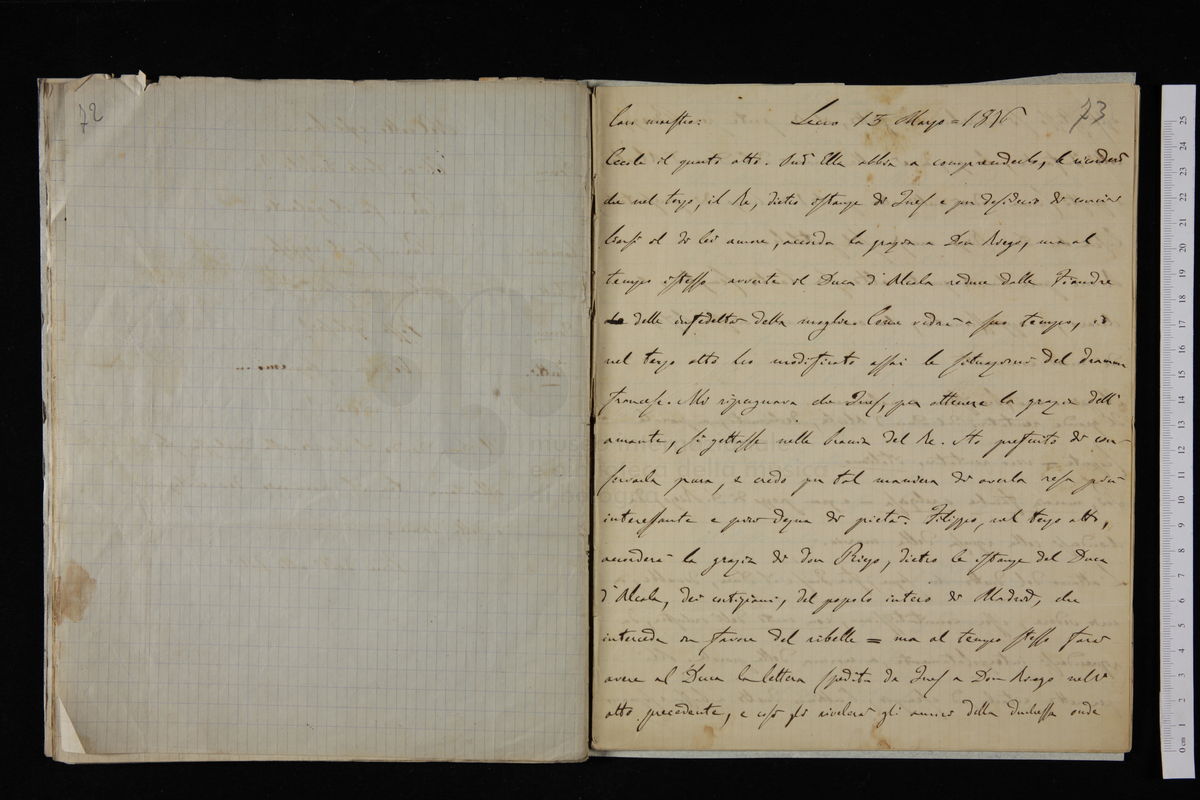 72
73
Caro maestro: Lecco 15 Marzo = 1876
Eccole il quarto atto. Perchè Ella abbia a comprenderlo, le ricorderò
che nel terzo, il Re, dietro istanze di Ines e per desiderio di conci-
liarsi di lei amore, accorda la grazia a Don Riego, ma al
tempo istesso avverte il Duca d'Alcala reduce dalle Fiandre
delle infedeltà della moglie. Come vedrà a suo tempo, io
nel terzo atto ho modificato assai le situazioni del dramma
francese. Mi ripugnava che Inès, per ottenere la grazia dell'
amante, si gettasse nelle braccia del Re. Ho preferito di con-
servarla pura, e credo per tal maniera di averla resa più
interessante e più degna di pietà. Filippo, nel terzo atto,
accorderà la grazia di Don Riego, dietro le istanze del Duca
d'Alcala, dei cortigiani, del popolo intero di Madrid, che
intercede in favore del ribelle = ma al tempo stesso farà
avere al Duca la lettera spedita da Ines a Don Riego nell'
atto precedente, e così gli rivelerà gli amori della duchessa onde